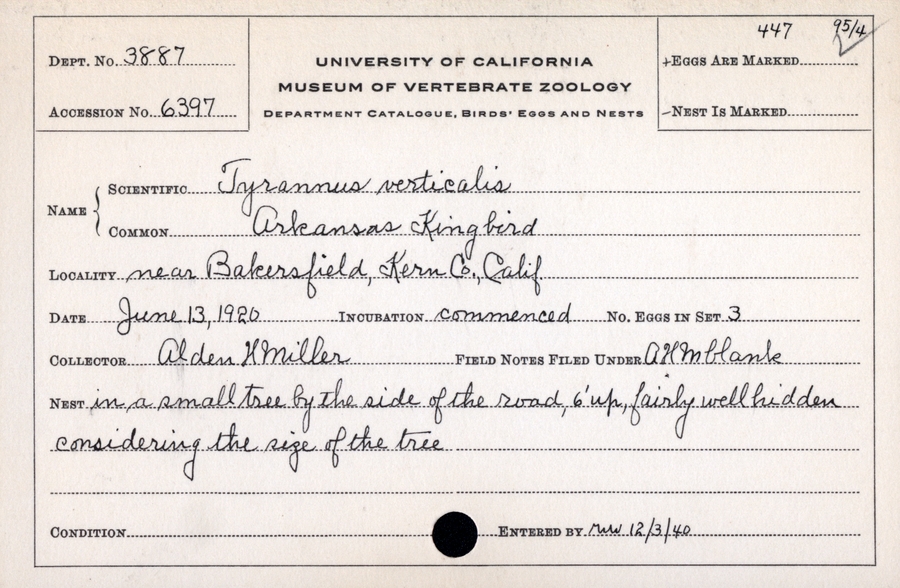 447 95/4
DEPT. NO. 3887
UNIVERSITY OF CALIFORNIA
+EGGS ARE MARKED
MUSEUM OF VERTEBRATE ZOOLOGY
ACCESSION NO. 6397
DEPARTMENT CATALOGUE, BIRDS' EGGS AND NESTS
-NEST IS MARKED
NAME { SCIENTIFIC Tyrannus verticalis
COMMON Arkansas Kingbird
LOCALITY near Bakersfield, Kern Co., Calif
DATE June 13, 1920 INCUBATION commenced NO. EGGS IN SET 3
COLLECTOR Alden H Miller FIELD NOTES FILED UNDER AHM blank
NEST in a small tree by the side of the road, 6' up, fairly well hidden
considering the size of the tree
CONDITION ENTERED BY 12/3/40